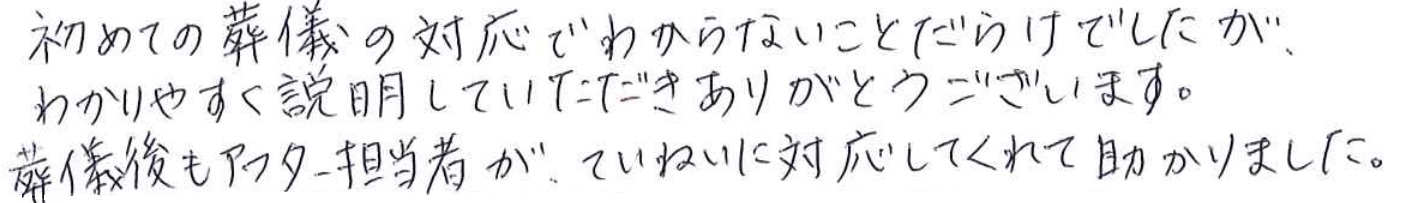 初めての葬儀の対応でわからないことだらけでしたが、
わかりやすく説明していただきありがとうございます。
葬儀後もアフター担当者が、ていねいに対応してくれて助かりました。